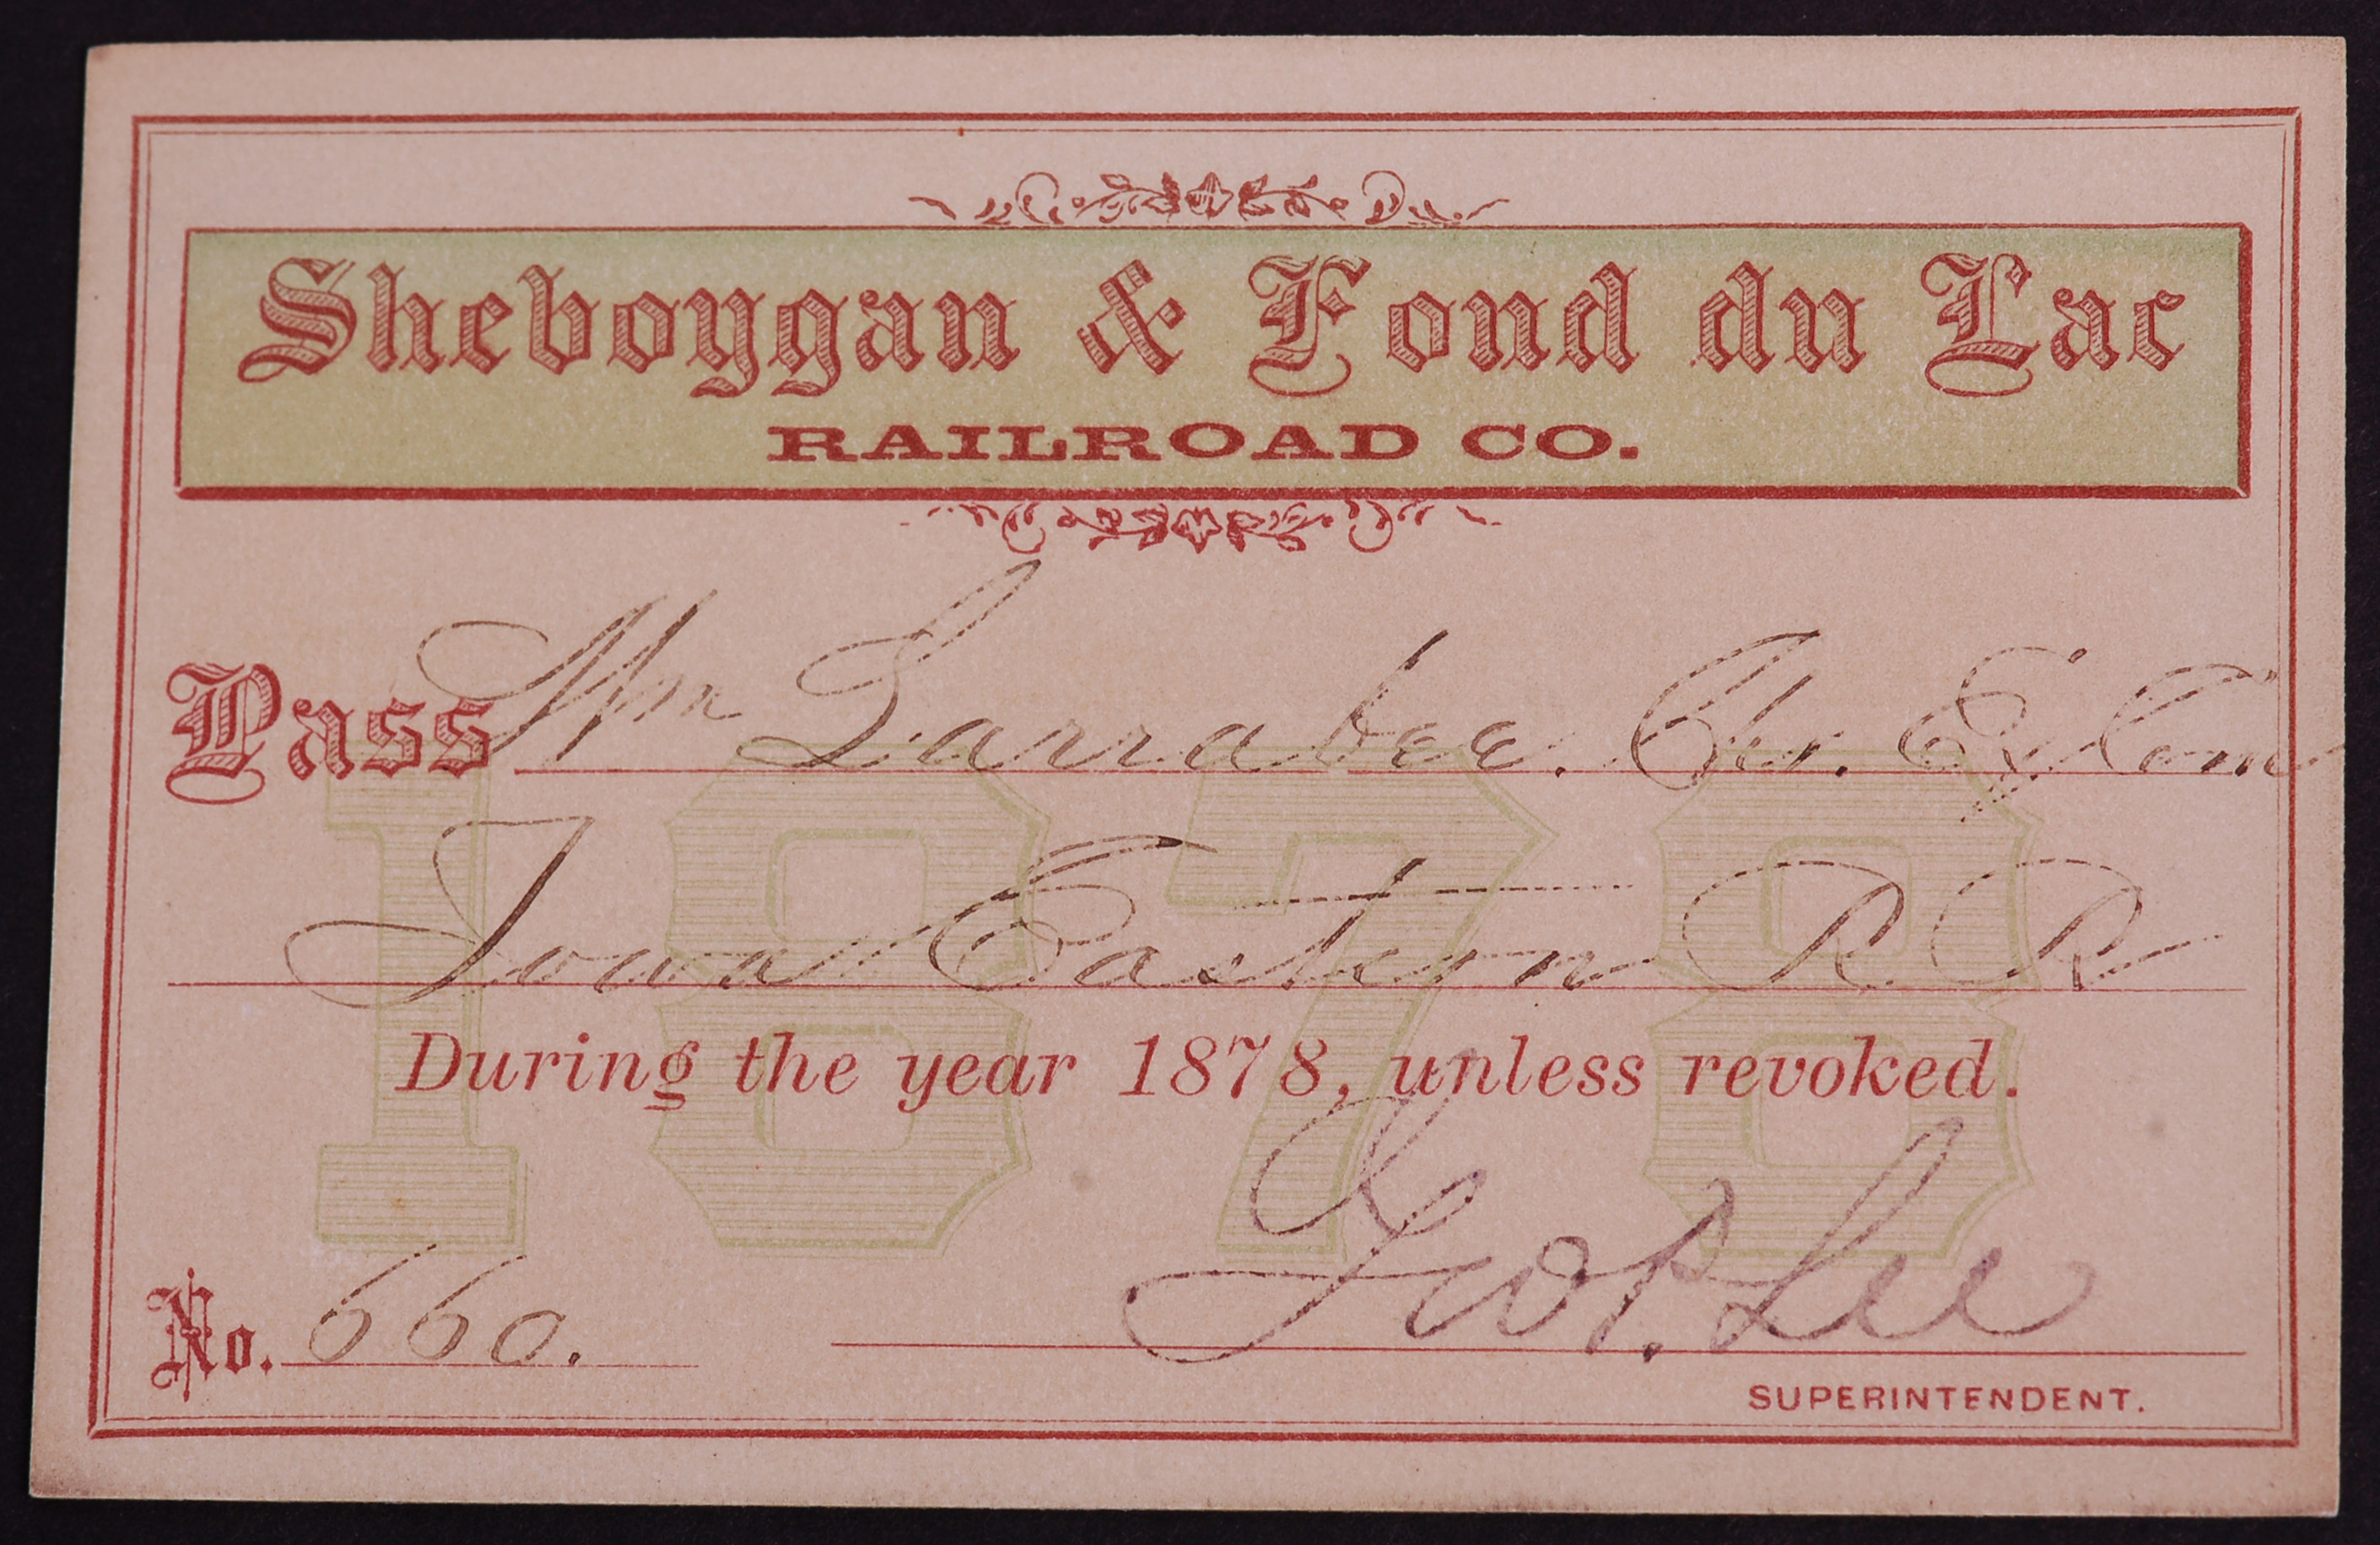 Sheboygan & Fond du Lac
RAILROAD CO.
Pass Wm Larrabee. Ch. Ex Com
Iowa Eastern R R
During the year 1878, unless revoked.
1878
No. 660. Geo. P. Lee
SUPERINTENDENT.